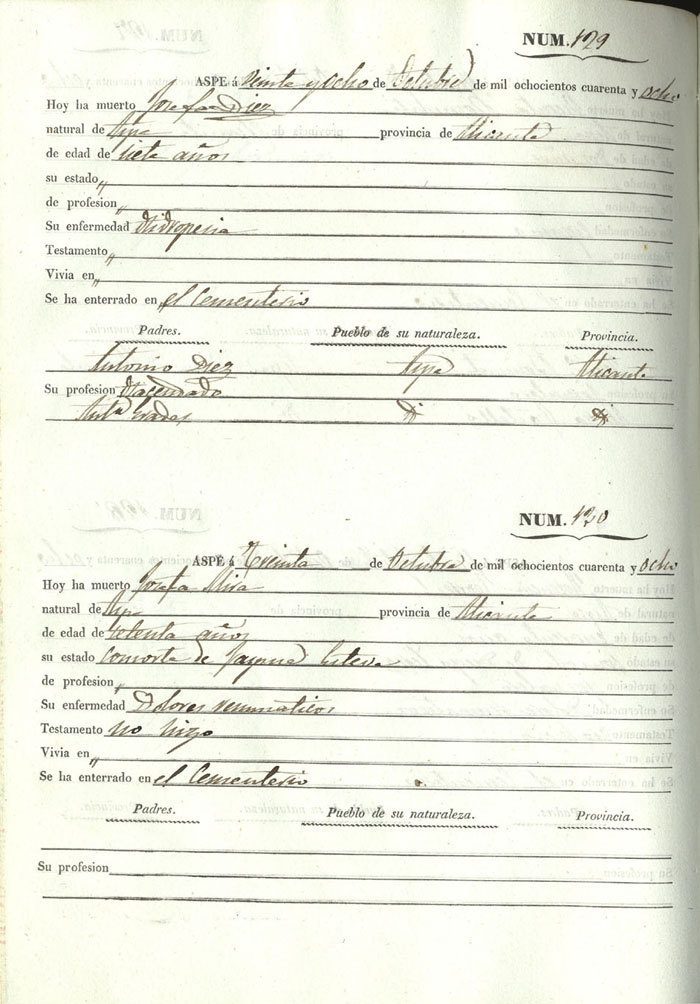 NUM. 129
ASPE á Veinte y ocho de Octubre de mil ochocientos cuarenta y ocho
Hoy ha muerto Josefa Diez
natural de Aspe provincia de Alicante
de edad de siete años
su estado "
de profesion "
Su enfermedad Hidropesia
Testamento "
Vivia en "
Se ha enterrado en el Cementerio
Padres. Pueblo de su naturaleza. Provincia.
Antonio Diez Aspe Alicante
Su profesion Hacendado
NUM. 130
ASPE á Treinta de Octubre de mil ochocientos cuarenta y ocho
Hoy ha muerto Josefa Mira
natural de Aspe provincia de Alicante
de edad de setenta años
su estado consorte de
de profesion "
Su enfermedad Dolores reumaticos
Testamento no hizo
Vivia en "
Se ha enterrado en el Cementerio
Padres. Pueblo de su naturaleza. Provincia.
Su profesion